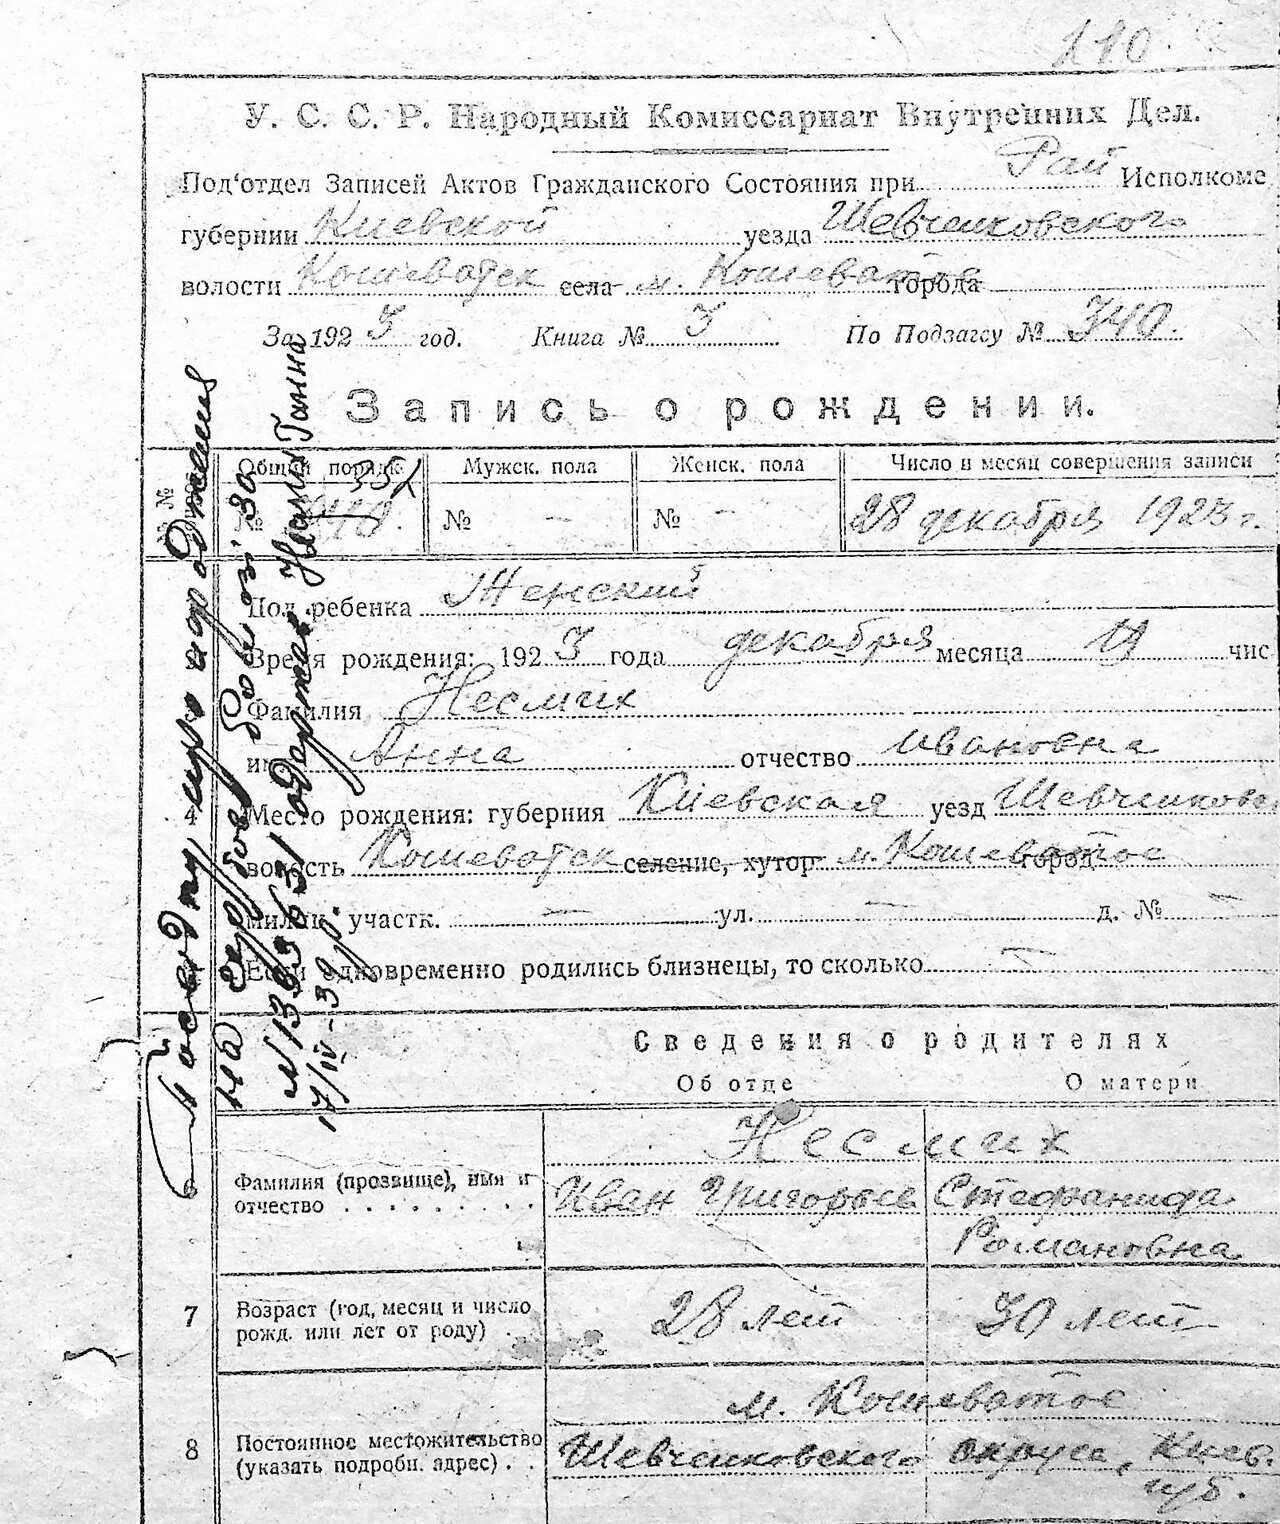 110.
У. С. С. Р. Народный Комиссариат Внутренних Дел.
Под'отдел Записей Актов Гражданского Состояния при Рай Исполкоме
губернии Киевской уезда Шевченковского
волости Кошеватск села м. Кошеватое города
За 1923 год. Книга № 3 По Подзагсу № 340.
Запись о рождении.
№ № Общий порядк. Мужск. пола Женск. пола Число и месяц совершения записи
352
№ 340. № — № — 28 декабря 1923 г.
Пол ребенка Женский
Время рождения: 1923 года декабря месяца чис
Фамилия Несмих
имя Анна отчество Ивановна
4 Место рождения: губерния Киевская уезд Шевченковс
волость Кошеватск селение, хутор м. Кошеватое город
милиц. участк. — ул. — д. № —
Если одновременно родились близнецы, то сколько —
Сведения о родителях
Об отце О матери
Несмих
6 Фамилия (прозвище), имя и отчество Иван Григорьев Стефанида
Романовна
7 Возраст (год, месяц и число рожд. или лет от роду) 28 лет 30 лет
м. Кошеватое
8 Постоянное местожительство (указать подробн. адрес) Шевченковского округа, Киев.
губ.
Посвідку про народження
на за
№ одержав Несмих Ганна
17/IV-39 р.